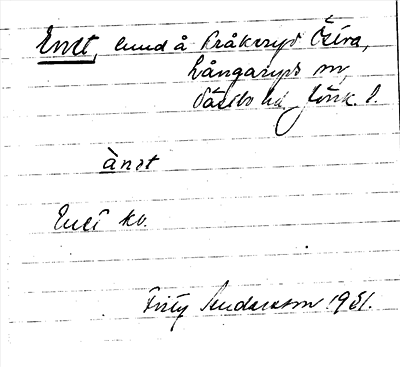 Enet, lund å Kråkeryd Östra,
Långaryds sn,
Västbo hd. Jönk. l.
ànət
Enet ko.
Fritz Andersson 1931.